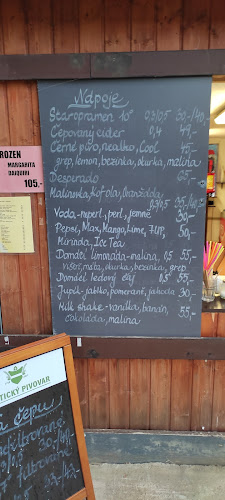 Nápoje
Staropramen 10° 0,3/0,5 30,-/40,-
Čepovaný cider 0,4 49,-
Černé pivo, nealko, Cool 45,-
grep, lemon, bezinka, okurka, malina
Desperado 65,-
Malinovka, kofola, oranžáda 35,-/45,-
0,3/0,5
Voda-neperl., perl., jemně 30,-
Pepsi, Max, Mango, Lime, 7UP, 50,-
Mirinda, Ice Tea
Domácí limonáda-malina, 0,5 55,-
višeň, máta, okurka, bezinka, grep
Domácí ledový čaj 0,5 55,-
Jupík-jablko, pomeranč, jahoda 30,-
Milk shake-vanilka, banán, 55,-
čokoláda, malina
ROZEN
MARGARITA
DAIQUIRI
105,-
TICKÝ PIVOVAR
a čepu